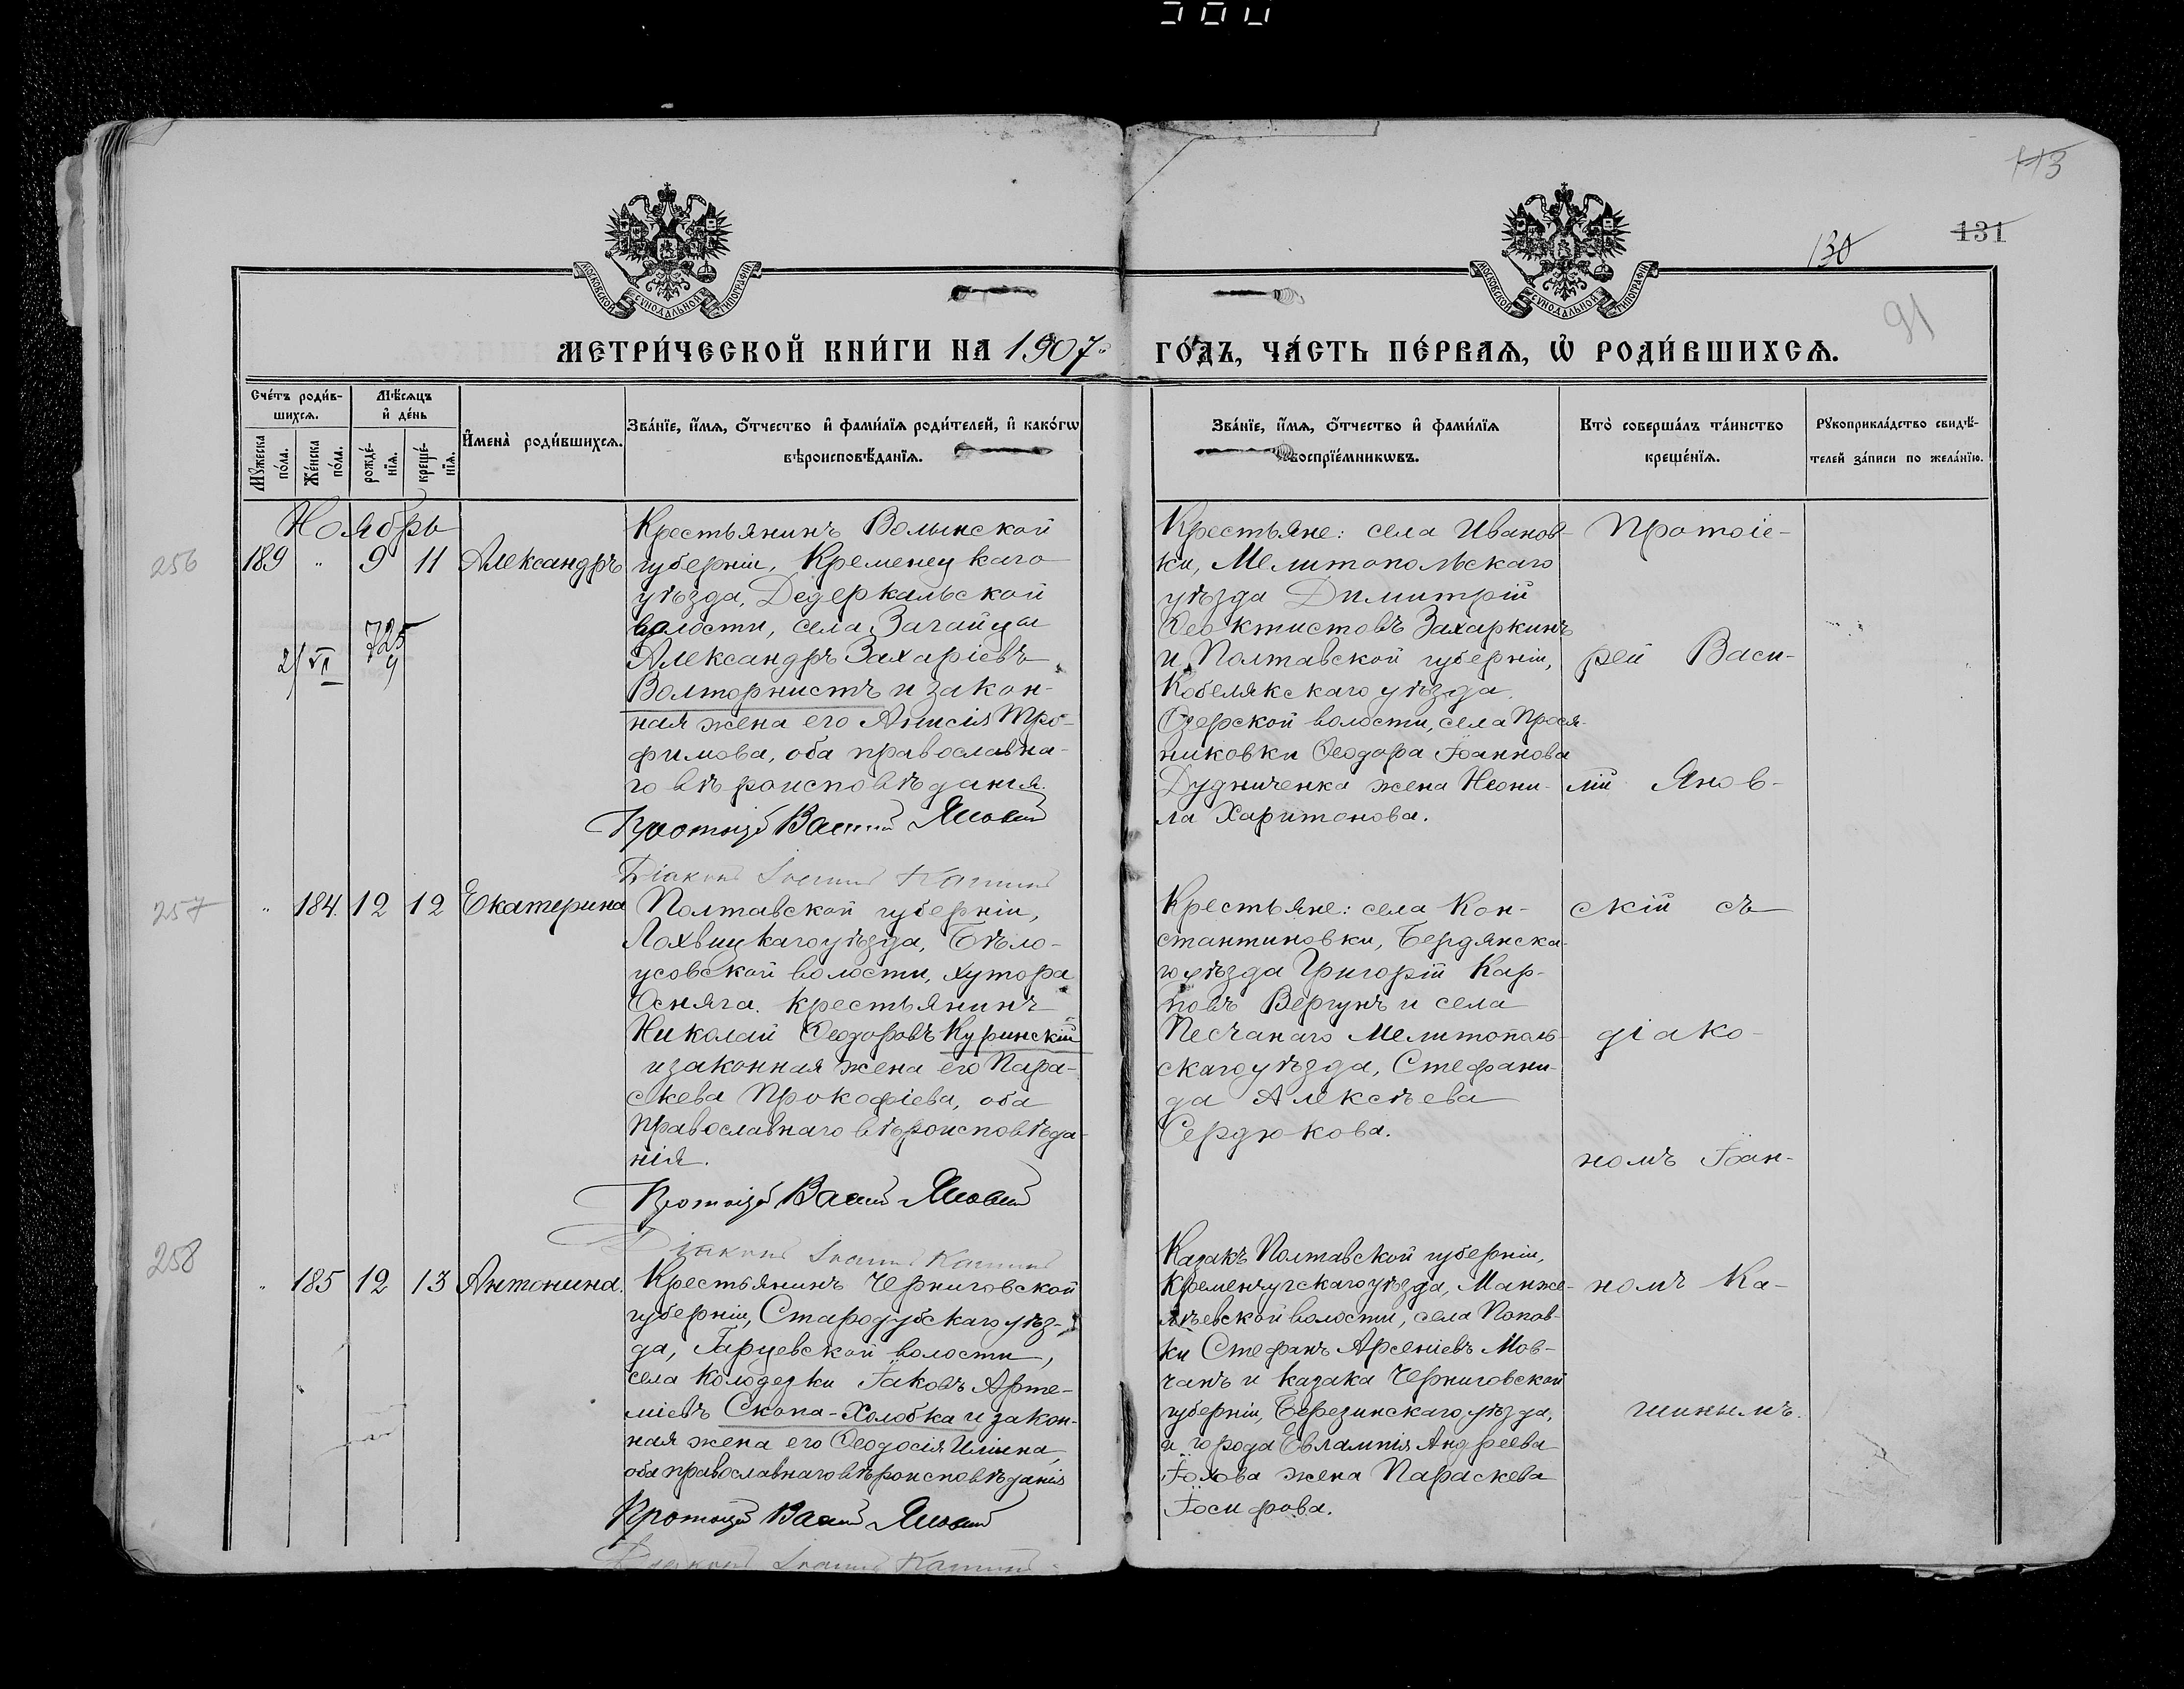 113
131
130
91
МОСКОВСКОЙ СѴНОДАЛЬНОЙ ТИПОГРАФІИ
МОСКОВСКОЙ СѴНОДАЛЬНОЙ ТИПОГРАФІИ
МЕТРИ́ЧЕСКОЙ КНИ́ГИ НА 1907 ГО́ДЪ, ЧА́СТЬ ПЕ́РВАѦ, Ѽ РОДИ́ВШИХСѦ.
Сче́тъ роди́в-
шихсѧ.
Мѹжеска по́ла.
Же́нска по́ла.
Мѣ́сѧцъ
и҆ де́нь
рожде́-
нїѧ.
креще́-
нїѧ.
И҆мена̀ роди́вшихсѧ.
Зва́нїе, и҆́мѧ, ѻ҆́тчество и҆ фами́лїѧ роди́телей, и҆ како́гѡ
вѣроисповѣ́данїѧ.
Зва́нїе, и҆́мѧ, ѻ҆́тчество и҆ фами́лїѧ
воспрїе́мникѡвъ.
Кто̀ соверша́лъ та́инство
креще́нїѧ.
Рѹкоприкла́дство свидѣ́-
телей за́писи по жела́нїю.
Ноябрь
256
189 " 9 11 Александръ
2/VI
725
Крестьянинъ Волынской
губерніи, Кременецкаго
уѣзда, Дедеркальской
волости, села Загайцы
Александръ Захаріевъ
Волторнистъ и закон-
ная жена его Анисія Тро-
фимова, оба православна-
го вѣроисповѣданія.
Протоіер Василій Яновский
Діаконъ Іоаннъ Кашинъ
Крестьяне: села Иванов-
ки, Мелитопольскаго
уѣзда Димитрій
Ѳеоктистовъ Захаркинъ
и Полтавской губерніи,
Кобелякскаго уѣзда
Озерской волости, села Прося-
никовки Ѳеодора Іоаннова
Дудниченка жена Неони-
ла Харитонова.
Протоіе-
рей Васи-
лій Янов-
скій съ
діако-
номъ Іоан-
номъ Ка-
шинымъ.
257
" 184. 12 12 Екатерина
Полтавской губерніи,
Лохвицкаго уѣзда, Бѣло-
усовской волости, хутора
Осняга. крестьянинъ
Николай Ѳеодоровъ Куринскій
и законная жена его Пара-
скева Прокофіева, оба
православнаго вѣроисповѣда-
нія.
Протоіер Василій Яновский
Діаконъ Іоаннъ Кашинъ
Крестьяне: села Кон-
стантиновки, Бердянска-
го уѣзда Григорій Кар-
повъ Вергунъ и села
Песчанаго Мелитополь-
скаго уѣзда, Стефани-
да Алексѣева
Сердюкова.
258
" 185 12 13 Антонина.
Крестьянинъ Черниговской
губерніи, Стародубскаго уѣз-
да, Гарцевской волости,
села Колодезки Іаковъ Арте-
міевъ Скопа-Холобка и закон-
ная жена его Ѳеодосія Иліина,
оба православнаго вѣроисповѣданія
Протоіер Василій Яновский
Діаконъ Іоаннъ Кашинъ
Казакъ Полтавской губерніи,
Кременчугскаго уѣзда, Манже-
лѣевской волости, села Попов-
ки Стефанъ Арсеніевъ Мов-
чанъ и казака Черниговской
губерніи, Березинскаго уѣзда,
и города Евлампія Андреева
жена Параскева
Іосифова.